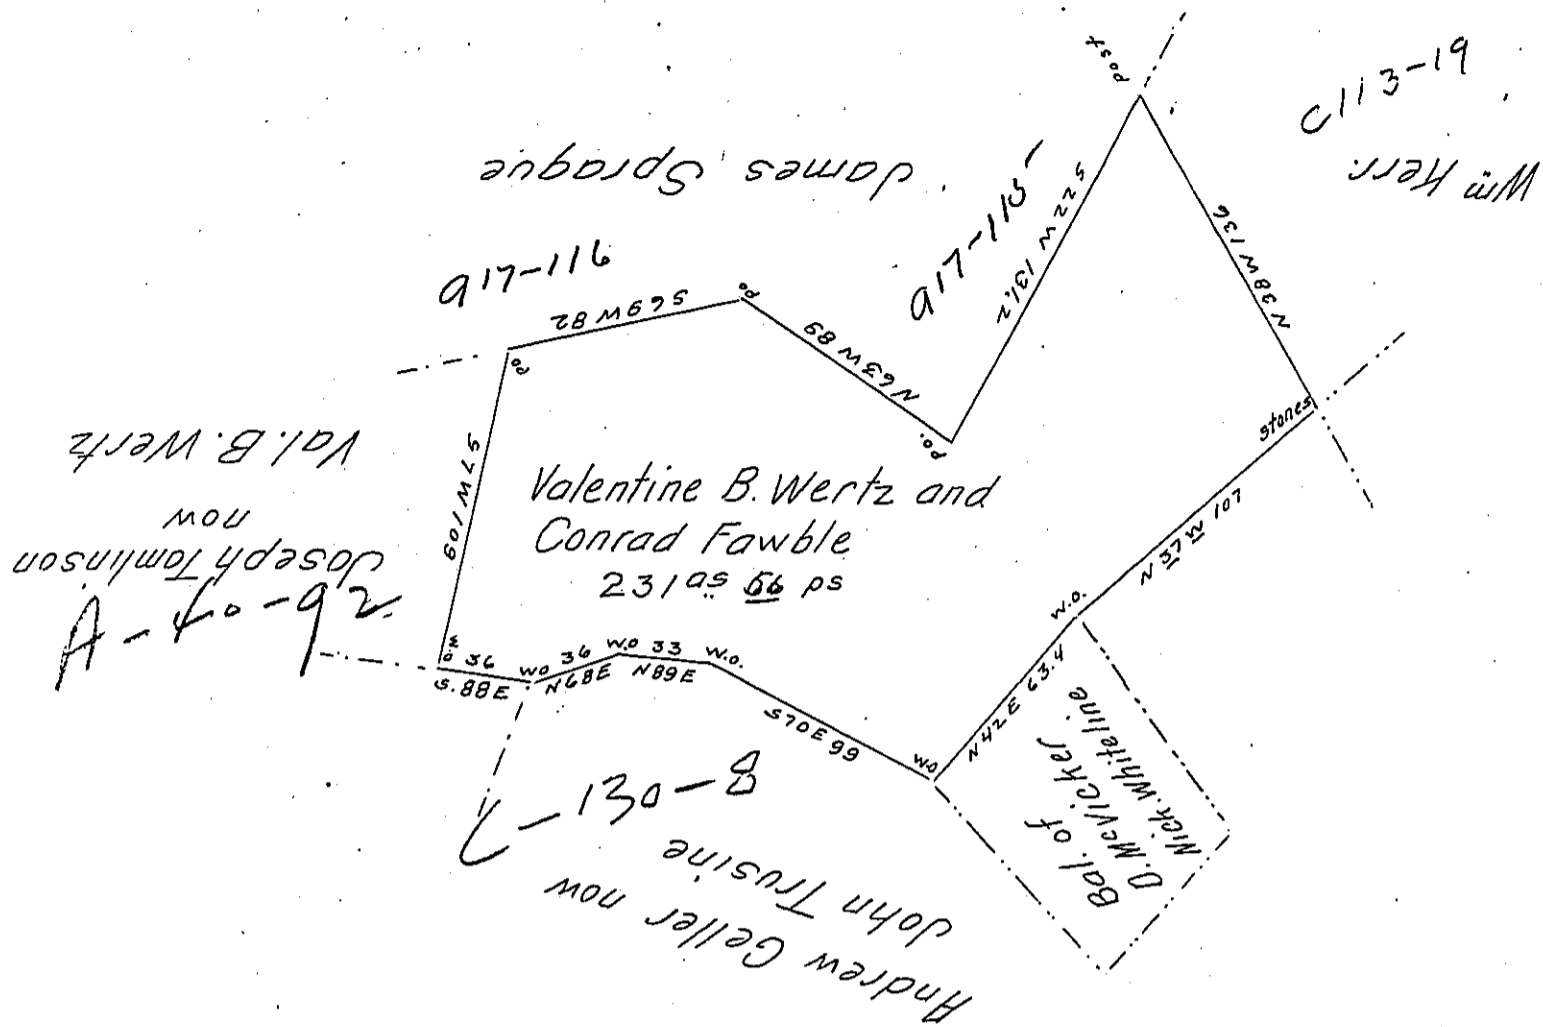 post
C113-19
Wm Kerr.
James Sprague
a17-115
S22W 131.2
N38W 136
a17-116
S69W 82
po
N63W 89
po.
po
stones
Val. B. Wertz
now
Joseph Tomlinson
A-40-92
S7W 109
Valentine B. Wertz and
Conrad Fawble
231 as 56 ps
N 37 W 107
w.o.
w.o.
36
S.88E
wo
36
N68E
w.o
33
N89E
w.o.
S70E 99
w.o
N42E 63.4
Bal. of
D. McVicker
Nick. Whiteline
C-130-8
Andrew Geller now
John Trusine